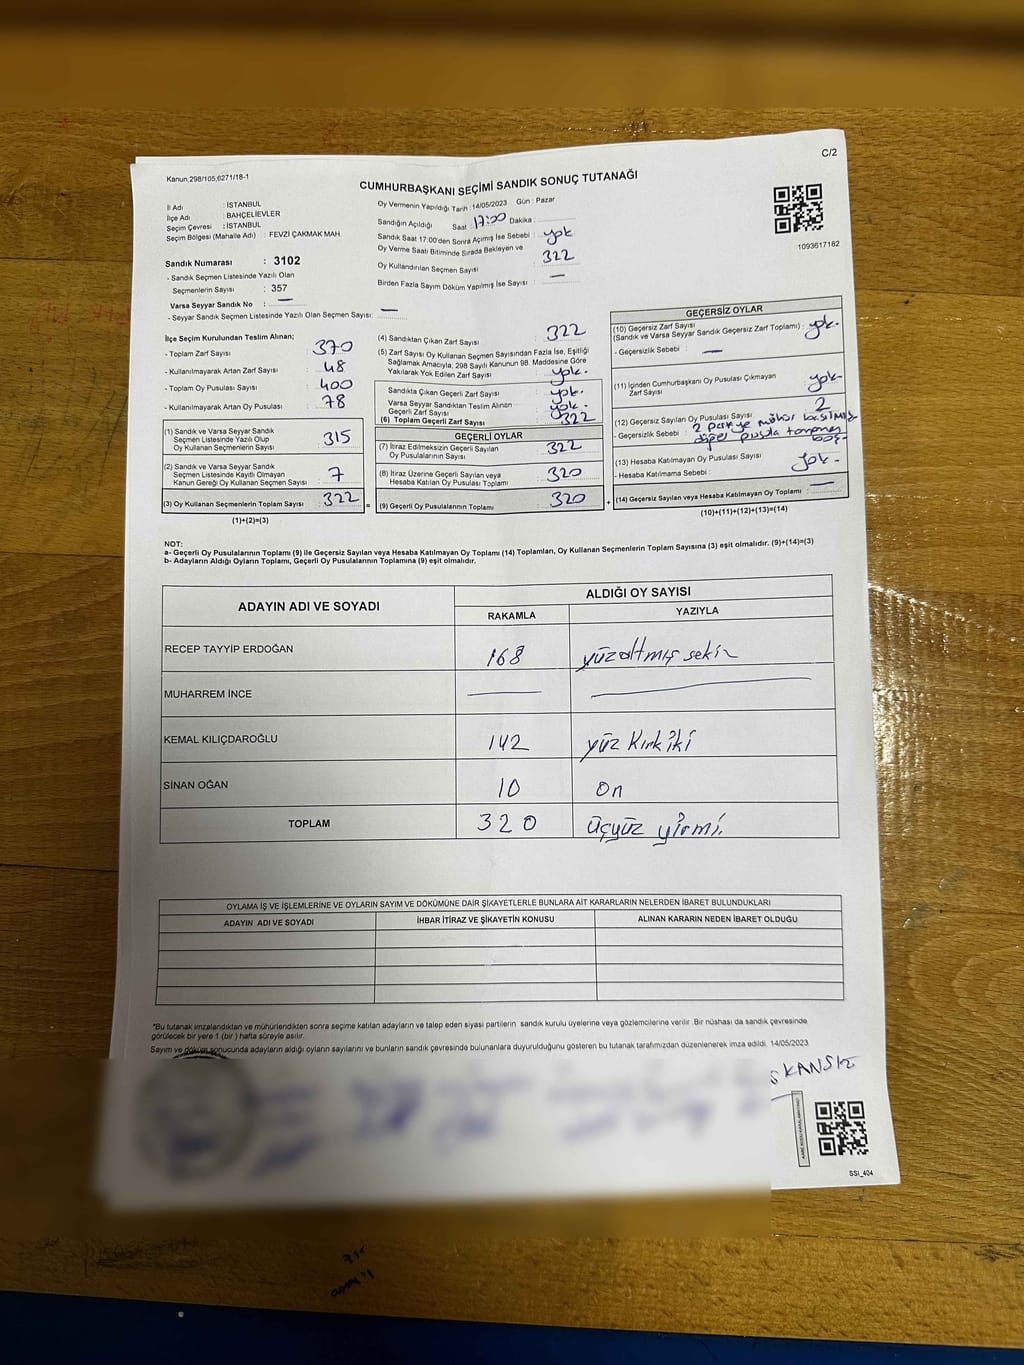 C/2
Kanun,298/105,6271/18-1
CUMHURBAŞKANI SEÇİMİ SANDIK SONUÇ TUTANAĞI
İl Adı : İSTANBUL
İlçe Adı : BAHÇELİEVLER
Seçim Çevresi : İSTANBUL
Seçim Bölgesi (Mahalle Adı) : FEVZİ ÇAKMAK MAH
Sandık Numarası : 3102
- Sandık Seçmen Listesinde Yazılı Olan
Seçmenlerin Sayısı : 357
Varsa Seyyar Sandık No : —
- Seyyar Sandık Seçmen Listesinde Yazılı Olan Seçmen Sayısı: —
Oy Vermenin Yapıldığı Tarih :14/05/2023 Gün : Pazar
Sandığın Açıldığı Saat : 17:00 Dakika :
Sandık Saat 17:00'den Sonra Açımış İse Sebebi : yok
Oy Verme Saati Bitiminde Sırada Bekleyen ve
Oy Kullandırılan Seçmen Sayısı : 322
Birden Fazla Sayım Döküm Yapılmış İse Sayısı : —
1093617182
İlçe Seçim Kurulundan Teslim Alınan;
- Toplam Zarf Sayısı : 370
- Kullanılmayarak Artan Zarf Sayısı : 48
- Toplam Oy Pusulası Sayısı : 400
- Kullanılmayarak Artan Oy Pusulası : 78
(1) Sandık ve Varsa Seyyar Sandık
Seçmen Listesinde Yazılı Olup
Oy Kullanan Seçmenlerin Sayısı : 315
(2) Sandık ve Varsa Seyyar Sandık
Seçmen Listesinde Kayıtlı Olmayan
Kanun Gereği Oy Kullanan Seçmen Sayısı : 7
(3) Oy Kullanan Seçmenlerin Toplam Sayısı : 322 =
(1)+(2)=(3)
(4) Sandıktan Çıkan Zarf Sayısı : 322
(5) Zarf Sayısı Oy Kullanan Seçmen Sayısından Fazla İse, Eşitliği
Sağlamak Amacıyla; 298 Sayılı Kanunun 98. Maddesine Göre
Yakılarak Yok Edilen Zarf Sayısı : yok.
Sandıkta Çıkan Geçerli Zarf Sayısı : yok.
Varsa Seyyar Sandıktan Teslim Alınan
Geçerli Zarf Sayısı : yok.
(6) Toplam Geçerli Zarf Sayısı : 322
GEÇERLİ OYLAR
(7) İtiraz Edilmeksizin Geçerli Sayılan
Oy Pusulalarının Sayısı : 322
(8) İtiraz Üzerine Geçerli Sayılan veya
Hesaba Katılan Oy Pusulası Toplamı : 320
(9) Geçerli Oy Pusulalarının Toplamı : 320 +
GEÇERSİZ OYLAR
(10) Geçersiz Zarf Sayısı
(Sandık ve Varsa Seyyar Sandık Geçersiz Zarf Toplamı) : yok.
- Geçersizlik Sebebi : —
(11) İçinden Cumhurbaşkanı Oy Pusulası Çıkmayan
Zarf Sayısı : yok-
(12) Geçersiz Sayılan Oy Pusulası Sayısı : 2
- Geçersizlik Sebebi : 2 partiye mühür basılmış
diğer pusula tamamen boş.
(13) Hesaba Katılmayan Oy Pusulası Sayısı : yok-
- Hesaba Katılmama Sebebi :
(14) Geçersiz Sayılan veya Hesaba Katılmayan Oy Toplamı : —
(10)+(11)+(12)+(13)=(14)
NOT:
a- Geçerli Oy Pusulalarının Toplamı (9) ile Geçersiz Sayılan veya Hesaba Katılmayan Oy Toplamı (14) Toplamları, Oy Kullanan Seçmenlerin Toplam Sayısına (3) eşit olmalıdır. (9)+(14)=(3)
b- Adayların Aldığı Oyların Toplamı, Geçerli Oy Pusulalarının Toplamına (9) eşit olmalıdır.
ADAYIN ADI VE SOYADI
ALDIĞI OY SAYISI
RAKAMLA YAZIYLA
RECEP TAYYİP ERDOĞAN 168 yüzaltmış sekiz
MUHARREM İNCE — —
KEMAL KILIÇDAROĞLU 142 yüz Kırk iki
SİNAN OĞAN 10 on
TOPLAM 320 üçyüz yirmi.
OYLAMA İŞ VE İŞLEMLERİNE VE OYLARIN SAYIM VE DÖKÜMÜNE DAİR ŞİKAYETLERLE BUNLARA AİT KARARLARIN NELERDEN İBARET BULUNDUKLARI
ADAYIN ADI VE SOYADI İHBAR İTİRAZ VE ŞİKAYETİN KONUSU ALINAN KARARIN NEDEN İBARET OLDUĞU
*Bu tutanak imzalandıktan ve mühürlendikten sonra seçime katılan adayların ve talep eden siyasi partilerin sandık kurulu üyelerine veya gözlemcilerine verilir .Bir nüshası da sandık çevresinde
görülecek bir yere 1 (bir ) hafta süreyle asılır.
Sayım ve döküm sonucunda adayların aldığı oyların sayılarını ve bunların sandık çevresinde bulunanlara duyurulduğunu gösteren bu tutanak tarafımızdan düzenlenerek imza edildi. 14/05/2023
KANSIZ
SSİ_404